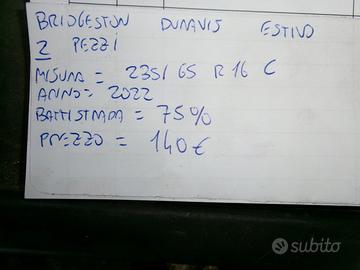 BRIDGESTON DURAVIS ESTIVO
2 PEZZI
MISURA = 235/65 R16 C
ANNO = 2022
BATTISTRADA = 75%
PREZZO = 140€
subito